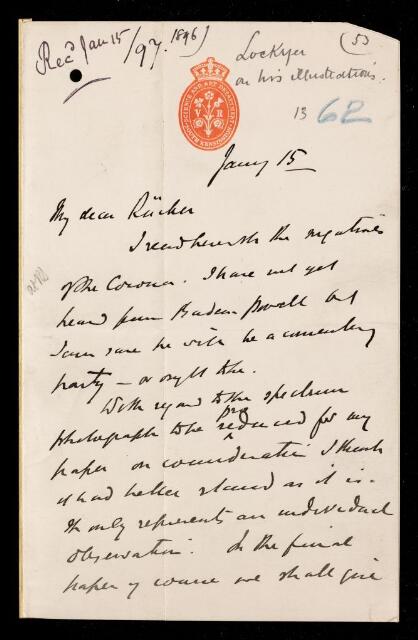 Recd Jan 15/97. 1896)
Lockyer
on his illustrations.
(53)
13 62
SCIENCE AND ART DEPARTMENT SOUTH KENSINGTON
V R
Jany 15
My dear Rücker
I send herewith the negatives
of the Corona. I have not yet
heard from Baden Powell but
I am sure he will be a consenting
party — or ought to be.
With regard to the spectrum
photograph to be reproduced for my
paper on consideration I think
it had better stand as it is.
It only represents an individual
observation. In the final
paper of course we shall give